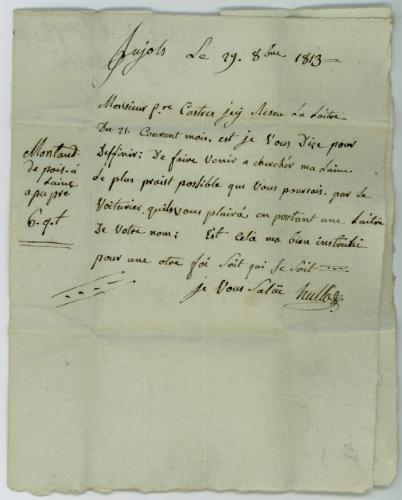 Anjols Le 29. 8bre 1813
Monsieur pre Castres jey Reseu La Laitre
Du 21. Courant mois, est je Vous Dire pour
Deffinir; De faire Venir a chercher ma Laine
Le plus praist possible que Vous pourais, par le
Voiturier, quils Vous plaira, en portant une Laitre
De Votre nom; Est Cela ma bien instruhit
pour une otre foi Soit qui Se Soit
je Vous Salüe
Montand
De pois. a
Laine
a peu pre
6. q.t